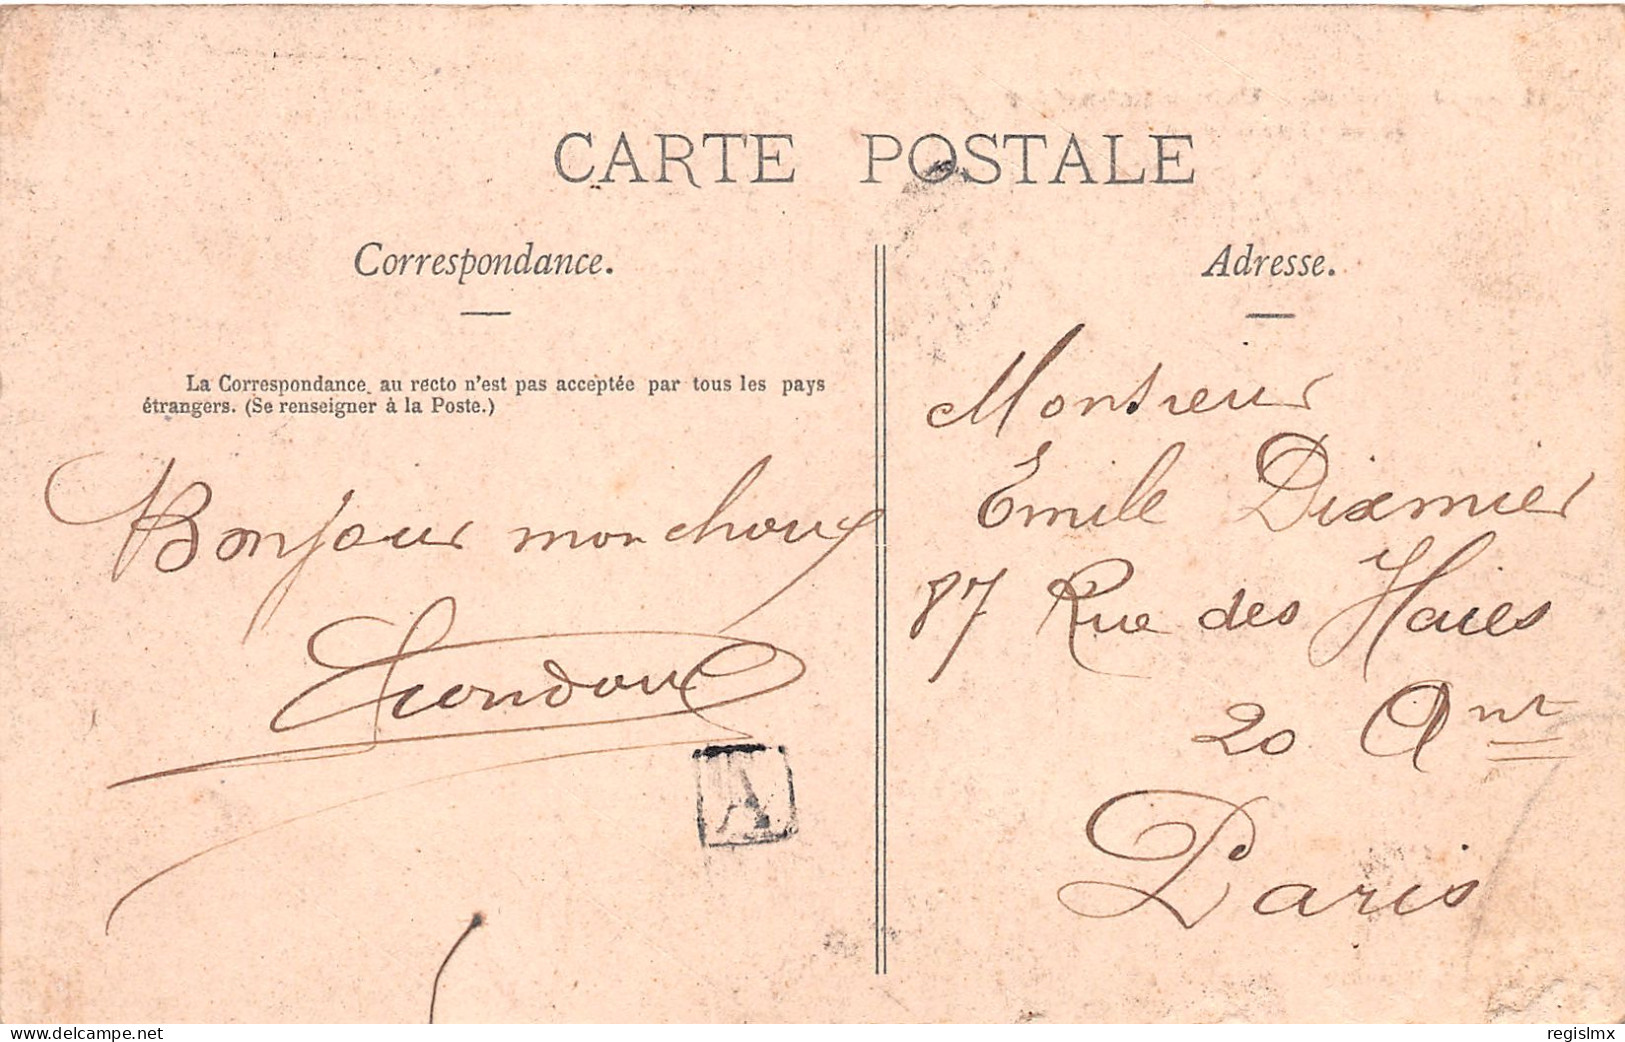 CARTE POSTALE
Correspondance.
La Correspondance au recto n'est pas acceptée par tous les pays
étrangers. (Se renseigner à la Poste.)
Bonjour mon choux
A
Adresse.
Monsieur
Emile Dixmier
87 Rue des Haies
20 Ant
Paris
www.delcampe.net
regislmx